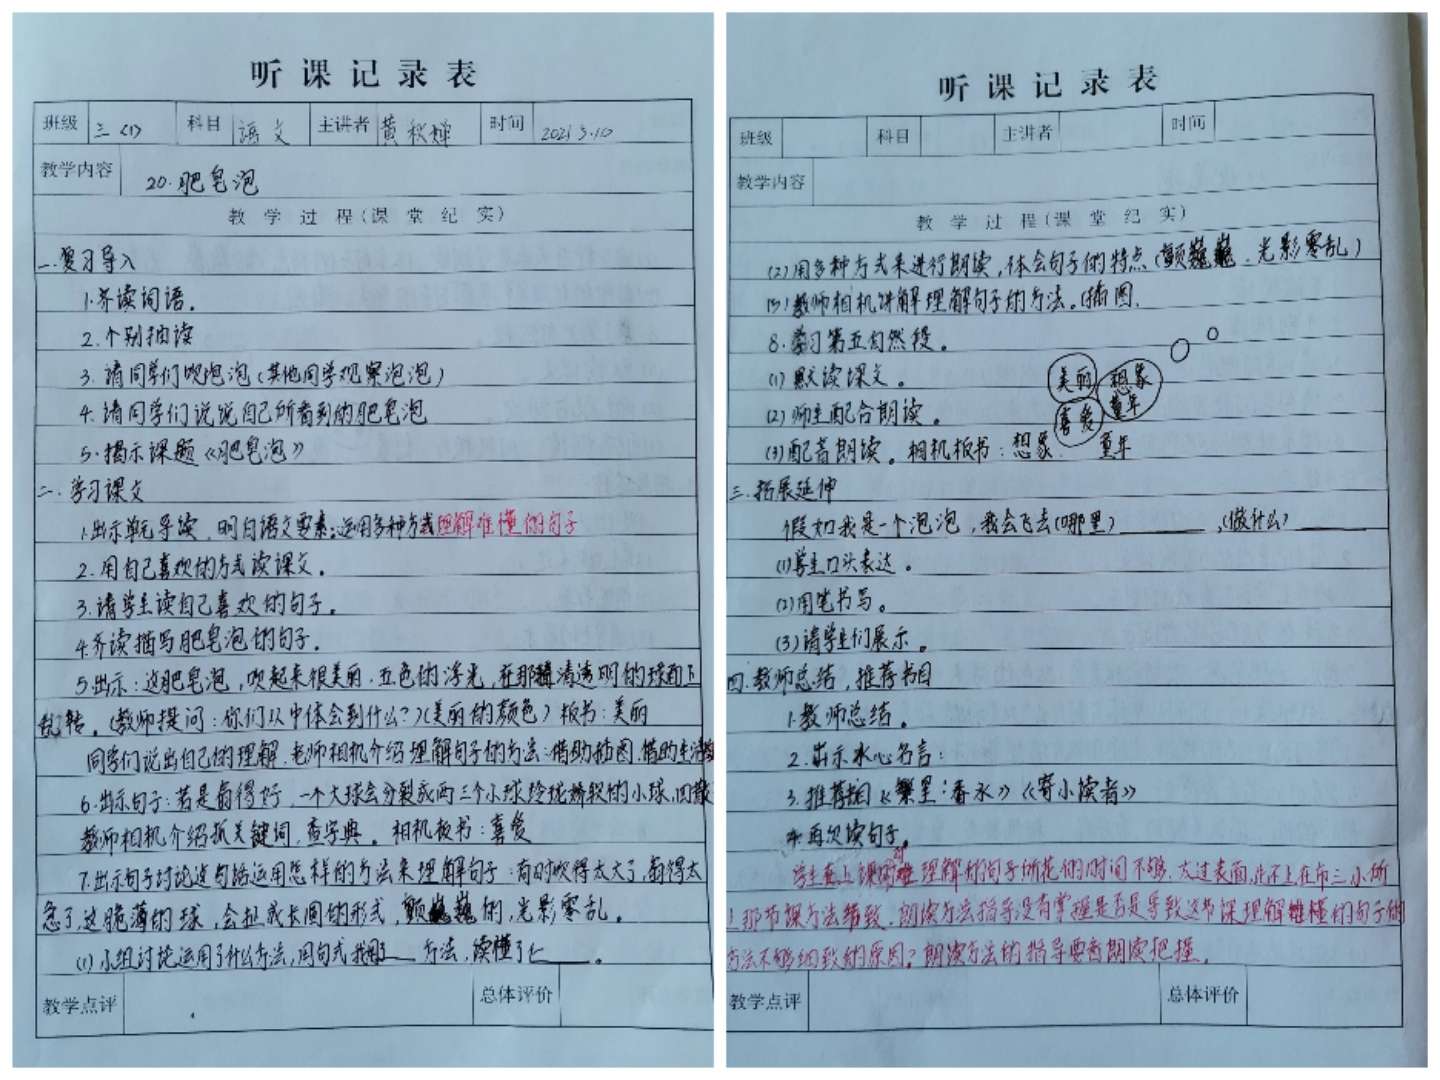 听课记录表
班级 三(1) 科目 语文 主讲者 黄秋婵 时间 2021 3.10
教学内容 20.肥皂泡
教 学 过 程(课 堂 纪 实)
一.复习导入
1.齐读词语。
2.个别抽读
3.请同学们吹泡泡(其他同学观察泡泡)
4.请同学们说说自己所看到的肥皂泡
5.揭示课题《肥皂泡》
二.学习课文
1.出示单元导读,明白语文要素:运用多种方式理解难懂的句子
2.用自己喜欢的方式读课文。
3.请学生读自己喜欢的句子。
4.齐读描写肥皂泡的句子.
5.出示:这肥皂泡,吹起来很美丽.五色的浮光,在那清透明的球面上
乱转。(教师提问:你们从中体会到什么?)(美丽的颜色)板书:美丽
同学们说出自己的理解.老师相机介绍理解句子的方法:借助插图.借助生活
6.出示句子:若是扇得好,一个大球会分裂成两三个小球玲珑娇软的小球,四散
教师相机介绍抓关键词,查字典。相机板书:喜爱
7.出示句子讨论这句话运用怎样的方法来理解句子:有时吹得太大了,扇得太
急了,这脆薄的球,会扯成长圆的形式,颤巍巍的,光影零乱。
(1)小组讨论运用了什么方法,用句式我用___方法,读懂了___。
教学点评 总体评价
听课记录表
班级 科目 主讲者 时间
教学内容
教 学 过 程(课 堂 纪 实)
(2)用多种方式来进行朗读,体会句子的特点(颤巍巍.光影零乱)
(3)教师相机讲解理解句子的方法。(插图.
8.学习第五自然段。
(1)默读课文。
美丽 想象
(2)师生配合朗读。
喜爱 童年
(3)配音朗读。相机板书:想象. 童年
三.拓展延伸
假如我是一个泡泡,我会飞去(哪里)______,(做什么)______
(1)学生口头表达。
(2)用笔书写。
(3)请学生们展示。
四.教师总结,推荐书目
1.教师总结。
2.出示冰心名言:
3.推荐《繁星·春水》《寄小读者》
4.再次读句子。
学生在上课时对难理解的句子所花的时间不够.太过表面,比不上在市三小所
上那节课方法细致.朗读方法指导没有掌握是否是导致这节课理解难懂的句子的
方法不够细致的原因?朗读方法的指导要看朗读把握。
教学点评 总体评价